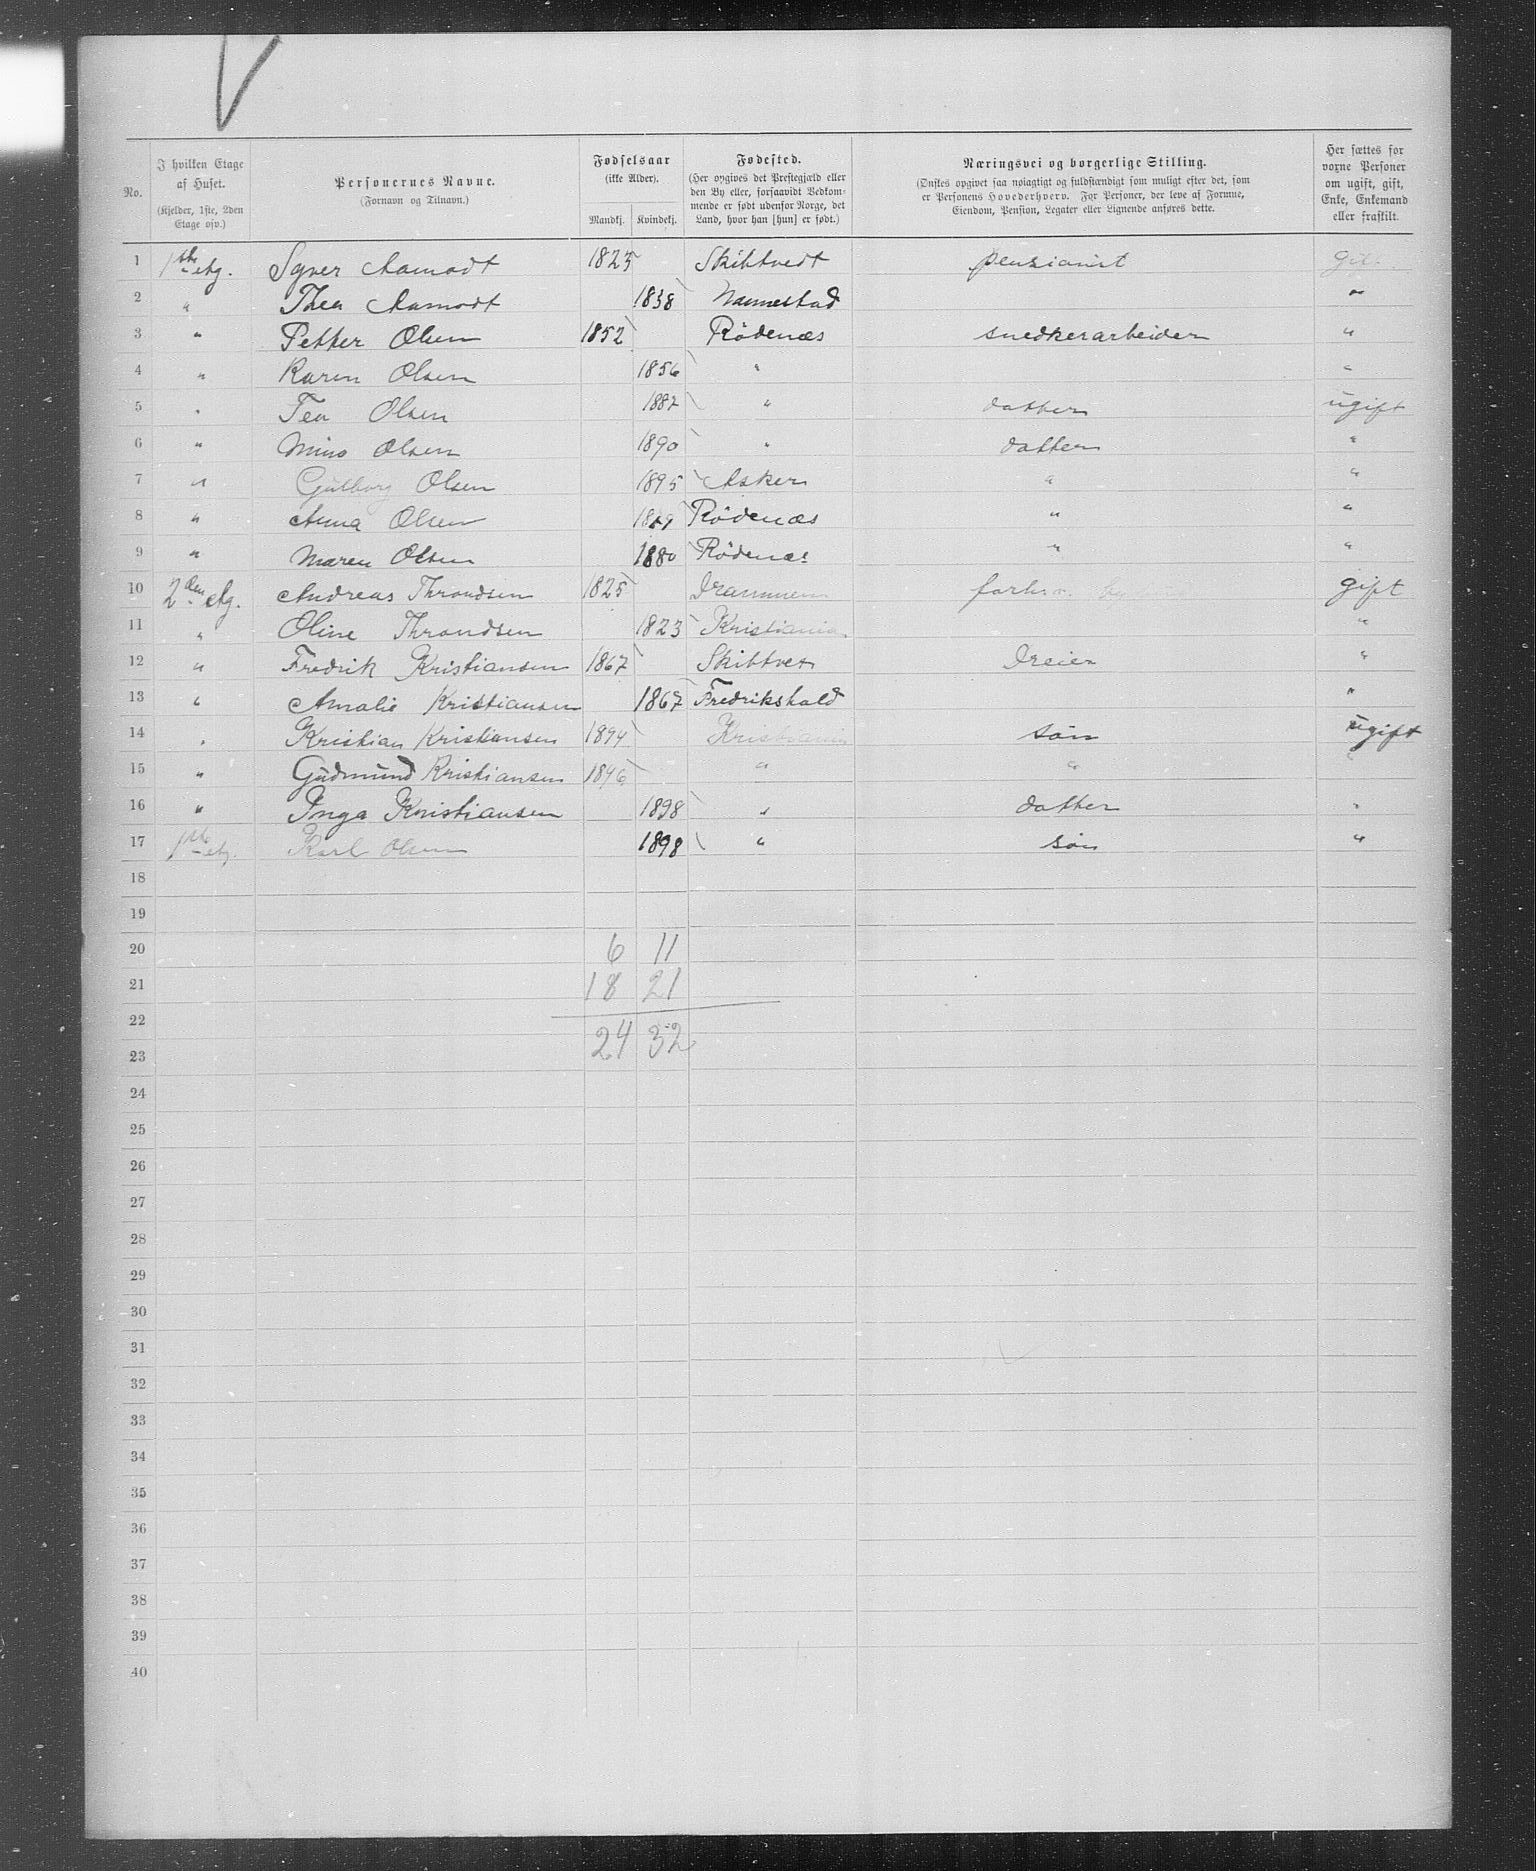 No.
I hvilken Etage af Huset. (Kjelder, 1ste, 2den Etage osv.)
Personernes Navne. (Fornavn og Tilnavn.)
Fødselsaar (ikke Alder). Mandkj. Kvindekj.
Fødested. (Her opgives det Prestegjæld eller den By eller, forsaavidt Vedkommende er født udenfor Norge, det Land, hvor han [hun] er født.)
Næringsvei og borgerlige Stilling. (Ønskes opgivet saa nøiagtigt og fuldstændigt som muligt efter det, som er Personens Hovederhverv. For Personer, der leve af Formue, Eiendom, Pension, Legater eller Lignende anføres dette.
Her sættes for voxne Personer om ugift, gift, Enke, Enkemand eller fraskilt.
1 1ste etg. Syver Aamodt 1825 Skibtvedt pensionist gift
2 " Thea Aamodt 1838 Nannestad "
3 " Petter Olsen 1852 Rödenæs snedkerarbeider "
4 " Karen Olsen 1856 " "
5 " Tea Olsen 1887 " datter ugift
6 " Mina Olsen 1890 " datter "
7 " Gulborg Olsen 1895 Asker " "
8 " Anna Olsen Rödenæs " "
9 " Maren Olsen 1880 Rödenæs " "
10 2den etg. Andreas Throndsen 1825 Drammen gift
11 " Oline Throndsen 1823 Kristiania "
12 " Fredrik Kristiansen 1867 Skibtvet Dreier "
13 " Amalie Kristiansen 1867 Fredrikshald "
14 " Kristian Kristiansen 1894 Kristiania søn ugift
15 " Gudmund Kristiansen 1896 " " "
16 " Inga Kristiansen 1898 " datter "
17 1ste etg. Karl Olsen 1898 " søn "
18
19
20 6 11
21 18 21
22
23 24 32
24
25
26
27
28
29
30
31
32
33
34
35
36
37
38
39
40